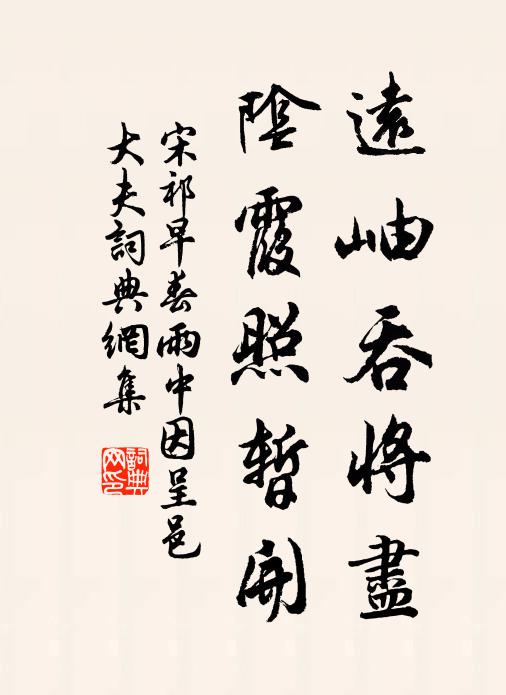 遠岫吞將盡
陰霞照暫開
宋祁早春雨中因呈邑
大夫詞典網集
詞典网印